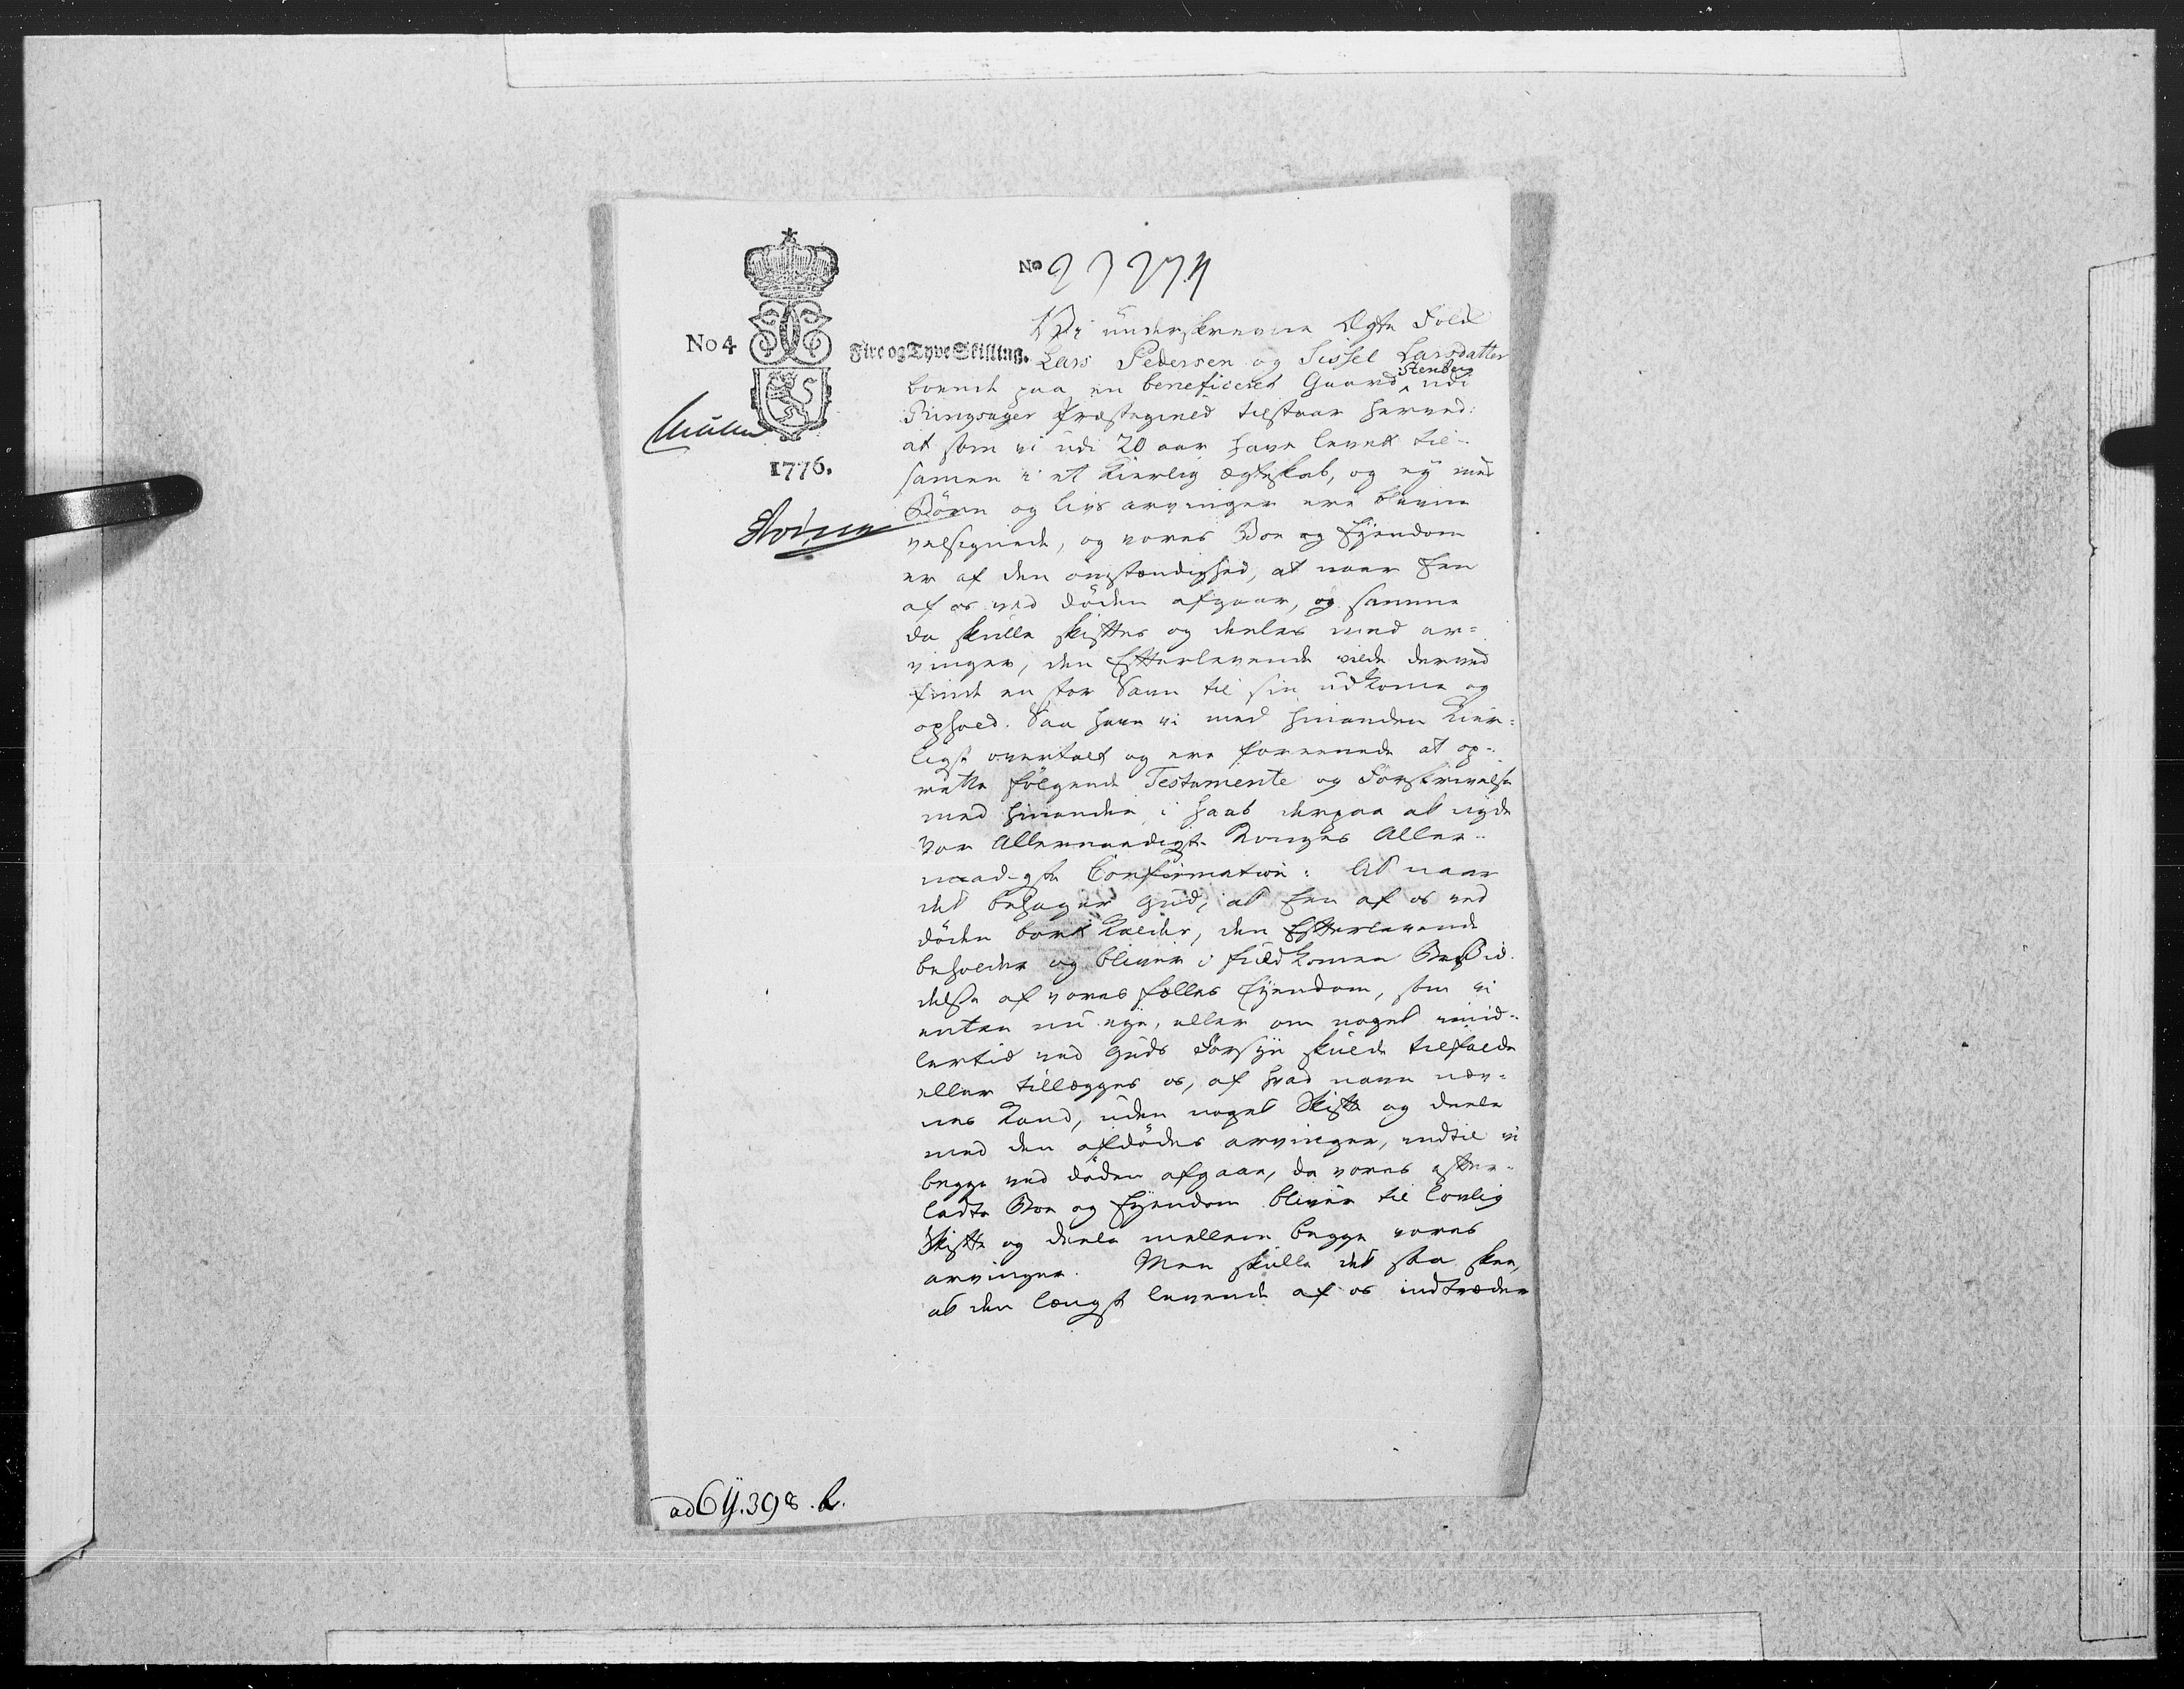 No 23274
No 4
Fire og Tyve Skilling.
1776.
Vi underskrevne Ægte Folk
Lars Pedersen og Sissel Larsdatter
boende paa en beneficeret Gaard Stenberg udi
Ringsager Præstegield tilstaar herved:
at som vi udi 20 aar have levet til-
samen i et Kierlig ægteskab, og ey med
Börn og livs arvinger ere blevne
velsignede, og vores Boe og Eyendom
er af den omstændighed, at naar Een
af os ved döden afgaar, og samme
da skulle skifftes og deeles med ar=
vinger, den Effterlevende vilde derved
finde en stor Savn til sin udkomme og
ophold. Saa have vi med hinanden Kier=
ligst overtalt og ere foreenede at op-
rette fölgende Testamente og Forskrivelse
med hinanden i haab derpaa at nyde
Vor Allernaadigste Konges Aller-
naadigste Confirmation: At naar
det behager Gud, at Een af os ved
döden bort Kalder, den Effterlevende
beholder og bliver i fuldkommen Besid-
delse af vores fælles Eyendom, som vi
enten nu eye, eller om noget imid-
lertid ved Guds Forsyn skulde tilfalde
eller tillegges os, af hvad navn nev-
nes Kand, uden noget Skiffte og deele
med den afdödes arvinger, indtil vi
begge ved döden afgaae, da vores effter-
ladte Boe og Eyendom bliver til lovlig
Skiffte og deele mellem begge vores
arvinger. Men skulle det saa skee,
at den længst levende af os indtræder
ad 6 4.398.b.